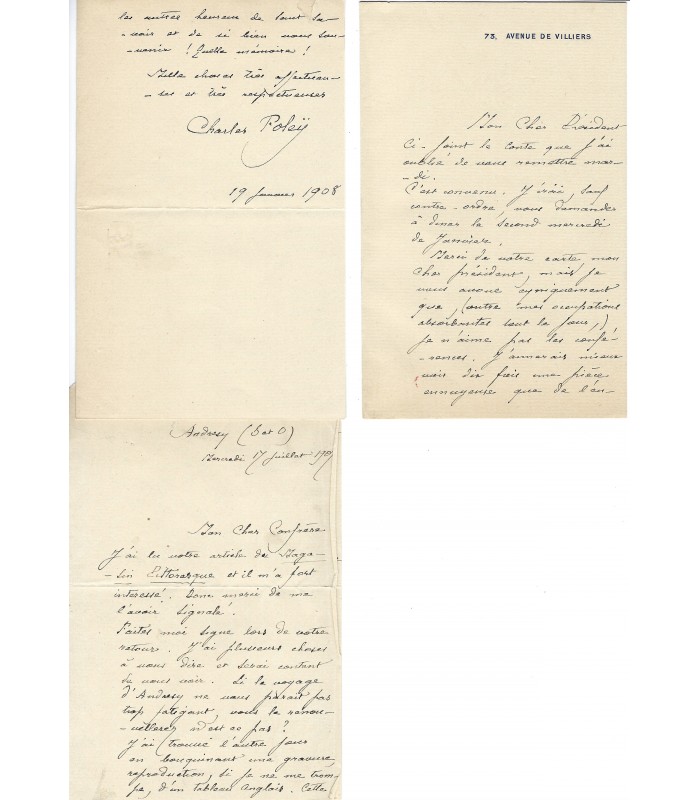 les autres heureux de tant sa-
-voir et de si bien nous sou-
-venir ! Quelle mémoire !
Mille choses très affectueu-
-ses et très respectueuses
Charles Foleÿ
19 Janvier 1908
73, AVENUE DE VILLIERS
Mon Cher Président
Ci-joint le conte que j'ai
oublié de vous remettre mar-
-di.
C'est convenu. J'irai, sauf
contre-ordre, vous demander
à diner le second mercredi
de Janvier.
Merci de votre carte, mon
cher président, mais je
vous avoue cyniquement
que, (outre mes occupations
absorbantes tout le jour,)
je n'aime pas les confé-
-rences. J'aimerais mieux
voir dix fois une pièce
ennuyeuse que de l'en-
Andresy (S et O)
Mercredi 17 Juillet 190
Mon Cher Confrère
J'ai lu votre article du Maga-
-sin Littoresque et il m'a fort
intéressé. Donc merci de me
l'avoir signalé.
Faites moi signe lors de votre
retour. J'ai plusieurs choses
à vous dire et serai content
de vous voir. Si le voyage
d'Andresy ne vous parait pas
trop fatigant, vous le renou-
-vellerez n'est ce pas ?
J'ai trouvé l'autre jour
en bouquinant une gravure,
reproduction, si je ne me trom-
-pe, d'un tableau Anglais. Cette